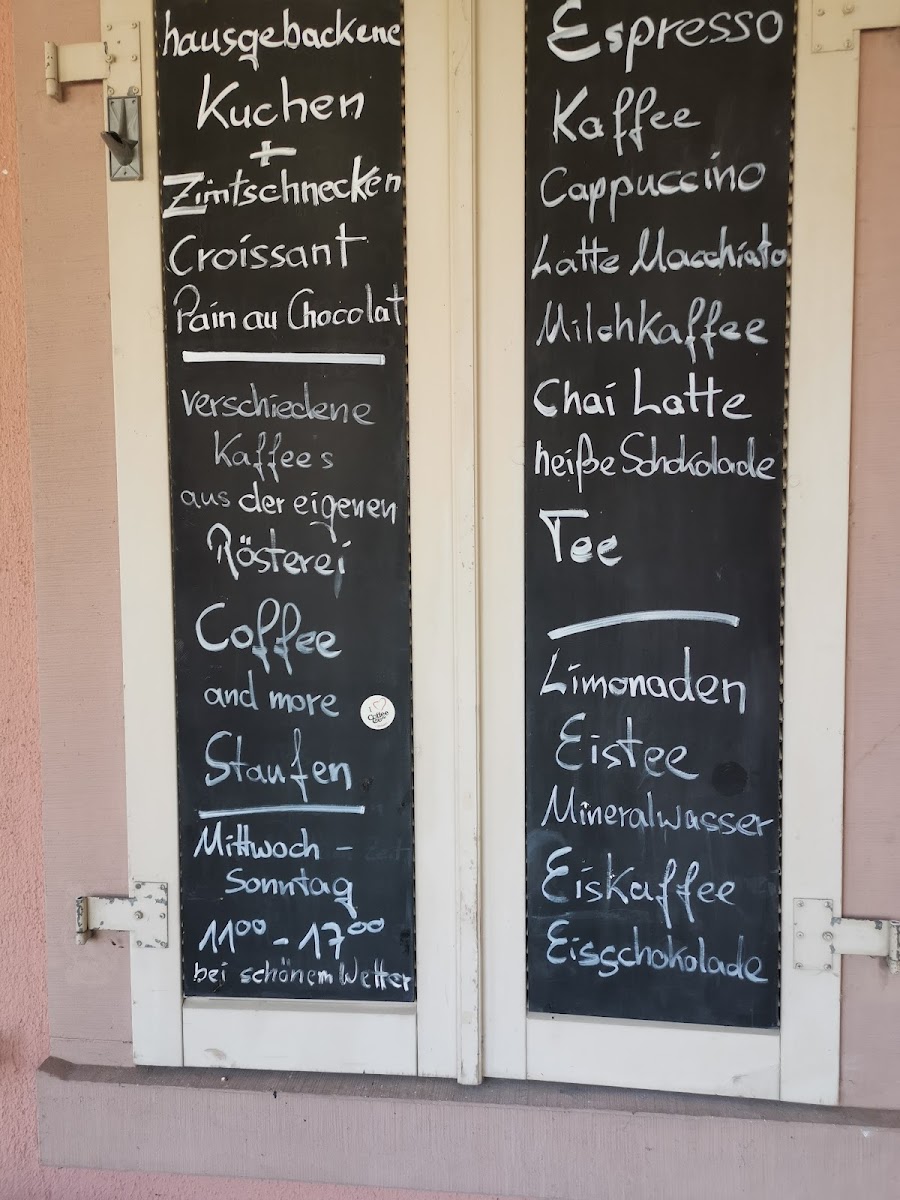 hausgebackene
Kuchen
+
Zimtschnecken
Croissant
Pain au Chocolat
verschiedene
Kaffee s
aus der eigenen
Rösterei
Coffee
and more
Staufen
Mittwoch -
Sonntag
11⁰⁰ - 17⁰⁰
bei schönem Wetter
Espresso
Kaffee
Cappuccino
Latte Macchiato
Milchkaffee
Chai Latte
heiße Schokolade
Tee
Limonaden
Eistee
Mineralwasser
Eiskaffee
Eisschokolade